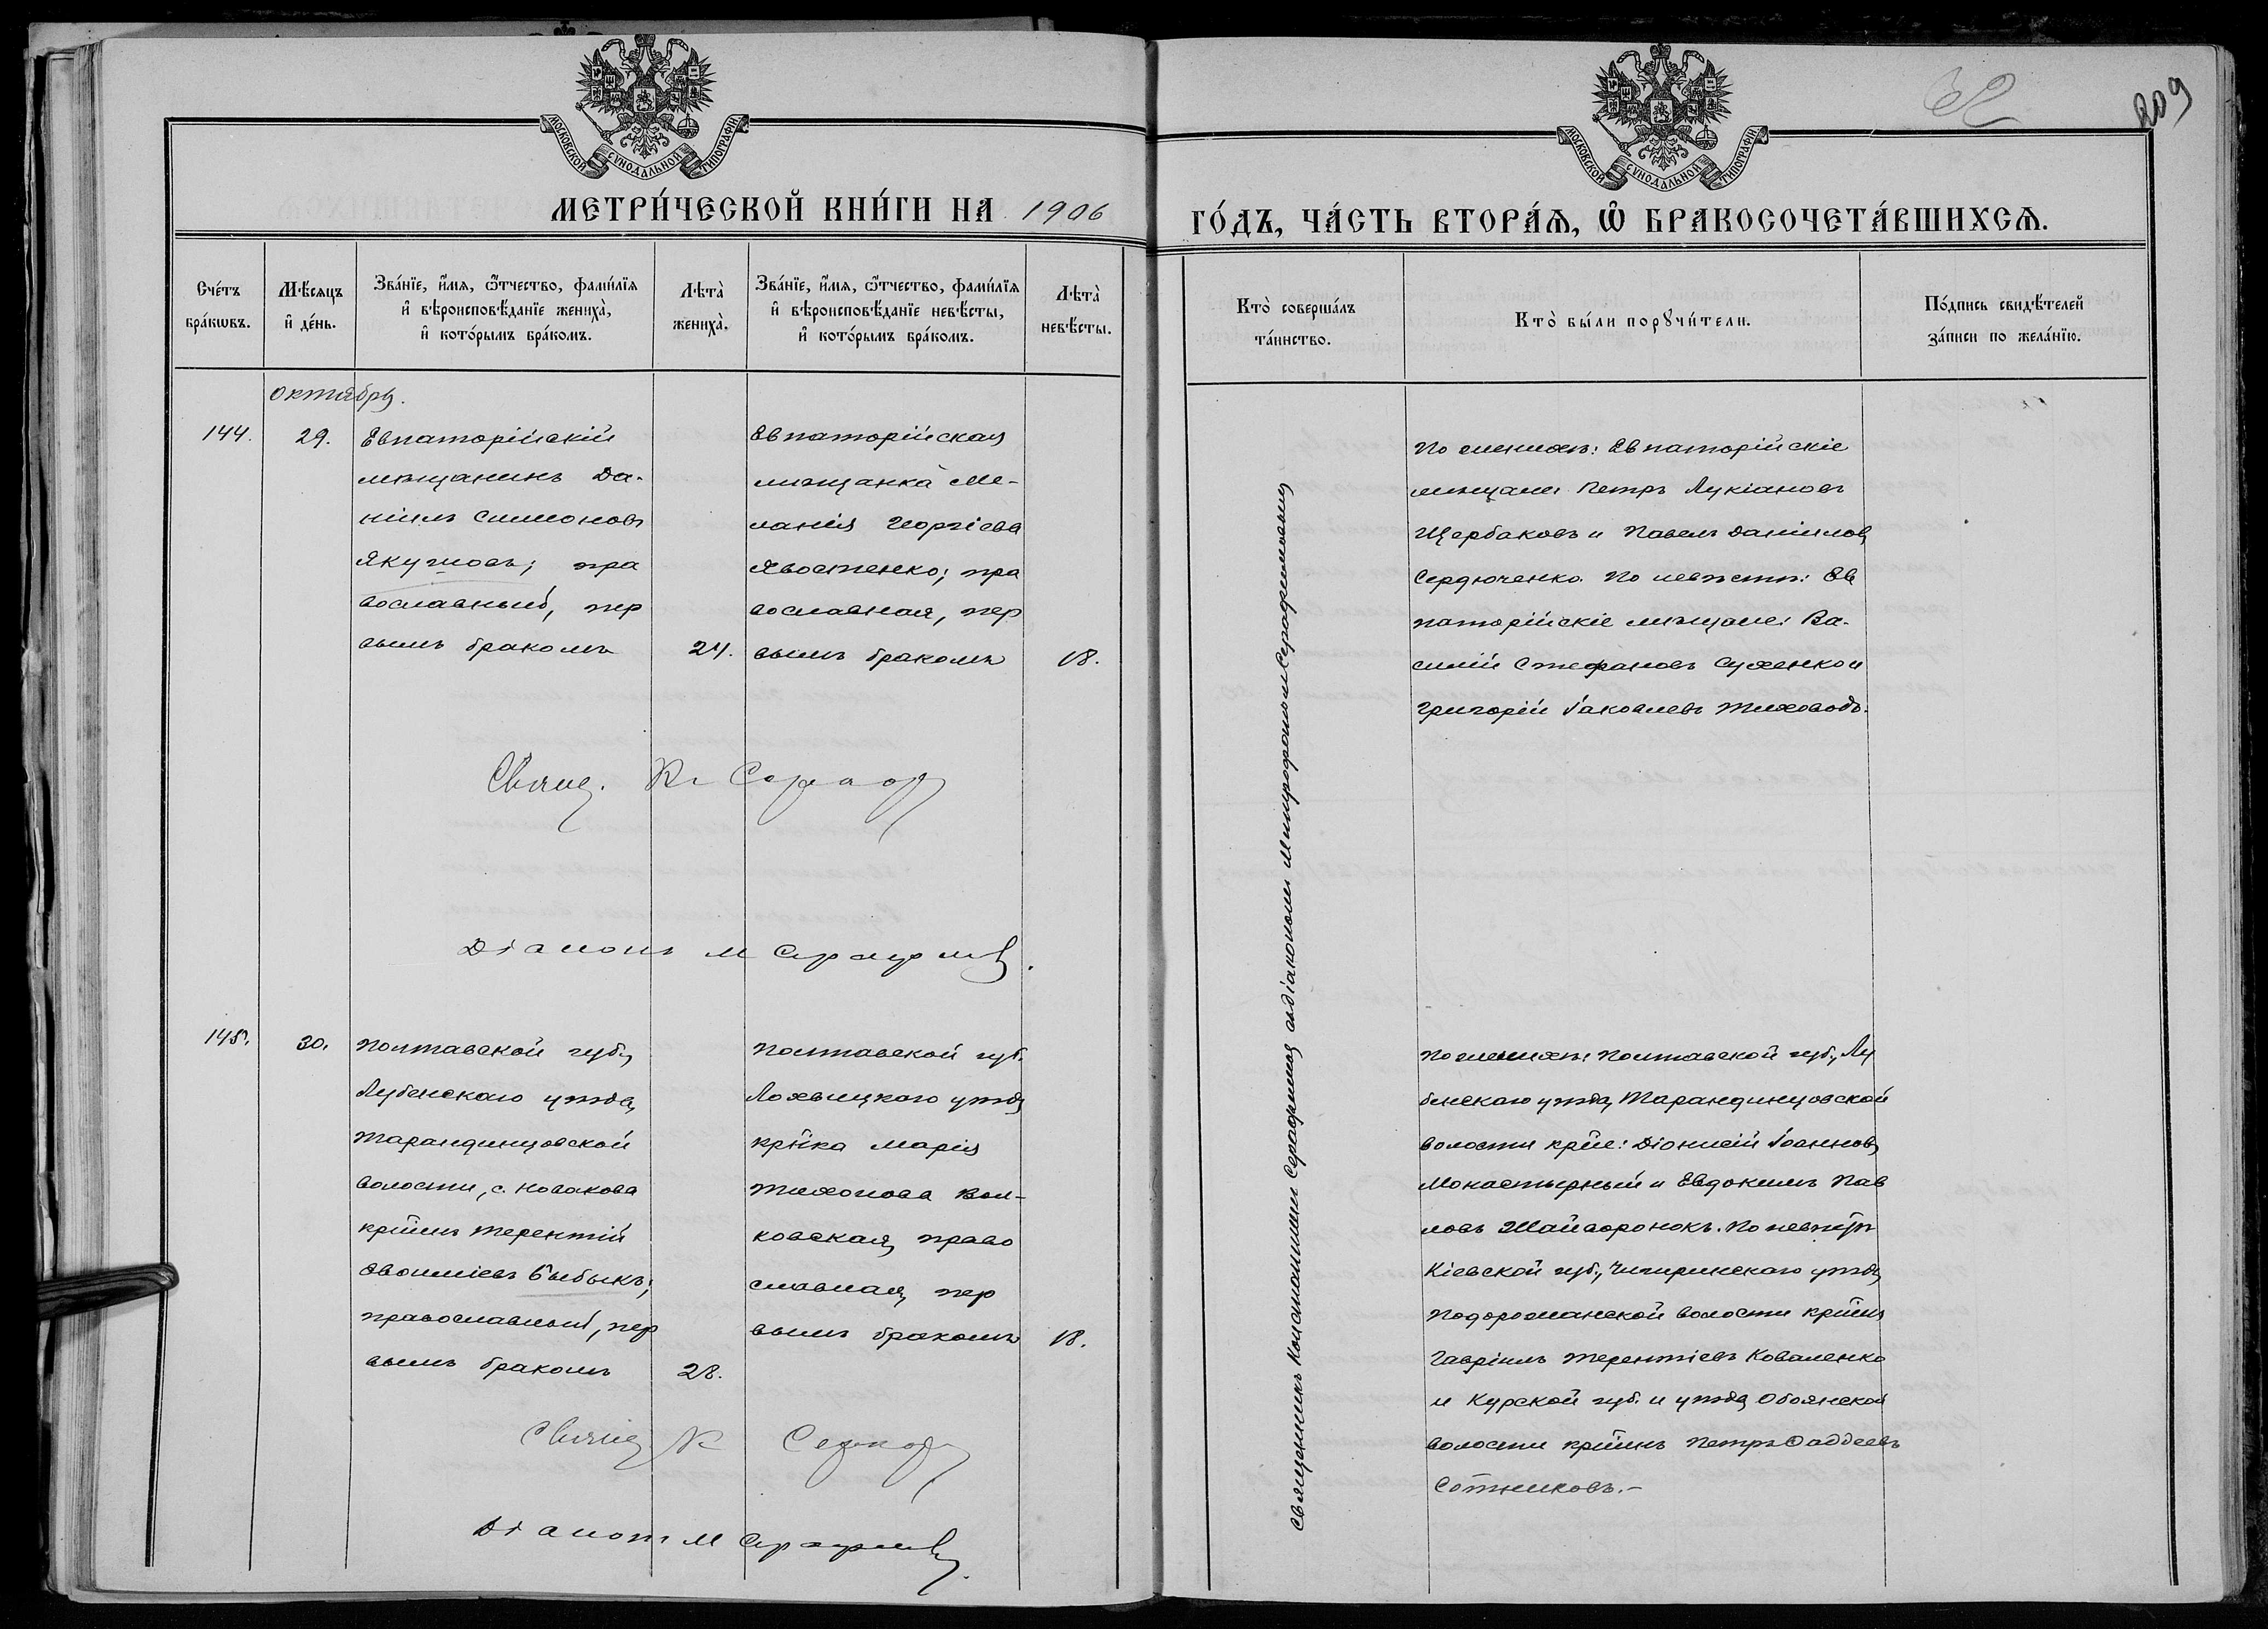 62
209
МОСКОВСКОЙ СѴНОДАЛЬНОЙ ТИПОГРАФІИ
МОСКОВСКОЙ СѴНОДАЛЬНОЙ ТИПОГРАФІИ
МЕТРИ́ЧЕСКОЙ КНИ́ГИ НА 1906
ГО́ДЪ, ЧА́СТЬ ВТОРА́Ѧ, Ѽ БРАКОСОЧЕТА́ВШИХСѦ.
Сче́тъ
бра́кѡвъ.
Мѣ́сяцъ
и҆ де́нь.
Зва́нїе, и҆́мѧ, ѻ҆́тчество, фамѝлїѧ
и҆ вѣроисповѣ́данїе жениха̀,
и҆ кото́рымъ бра́комъ.
Лѣта̀
жениха̀.
Зва́нїе, и҆́мѧ, ѻ҆́тчество, фамѝлїѧ
и҆ вѣроисповѣ́данїе невѣ́сты,
и҆ кото́рымъ бра́комъ.
Лѣта̀
невѣ́сты.
Кто̀ соверша́лъ
та́инство.
Кто̀ бы́ли порꙋчи́тели.
По́дпись свидѣ́телей
за́писи по жела́нїю.
Октябрь.
144.
29.
Евпаторійскій
мѣщанинъ Да-
ніилъ Симоновъ
Якущовъ; пра
вославный, пер
вымъ бракомъ
24.
Евпаторійская
мѣщанка Ме-
ланія Георгіева
Хвостенко; пра
вославная, пер
вымъ бракомъ
18.
По женихѣ: Евпаторійскіе
мѣщане Петръ Лукіановъ
Щербаковъ и Павелъ Даніиловъ
Сердюченко. По невѣстѣ: Ев
паторійскіе мѣщане: Ва-
силій Стефановъ Сухенко и
Григорій Іаковлевъ Тиховодъ.
Свящ. К. Сераф
Діаконъ М Серафимов.
Священникъ Константинъ Серафимовъ съ діакономъ Митрофаномъ Серафимовымъ
145.
30.
Полтавской губ.,
Лубенскаго уѣзда,
Тарандинцовской
волости, с. Новакова
кр̃нинъ Терентій
Діонисіевъ Бибикъ;
православный, пер
вымъ бракомъ
28.
Полтавской губ.
Лохвицкаго уѣзда
кр̃нка Марія
Тихонова Вол-
ковская, право
славная, пер
вымъ бракомъ
18.
По женихѣ: Полтавской губ., Лу
бенскаго уѣзда, Тарандинцовской
волости кр̃не: Діонисій Іоанновъ
Монастырный и Евдокимъ Пав
ловъ Шайворонокъ. По невѣстѣ
Кіевской губ., Чигиринскаго уѣзда,
Подорожанской волости кр̃нинъ
Гавріилъ Терентіевъ Коваленко
и Курской губ. и уѣзда, Обоянской
волости кр̃нинъ Петръ Ѳаддеевъ
Сотниковъ.-
Свящ К Сераф
Діаконъ М Серафимов.